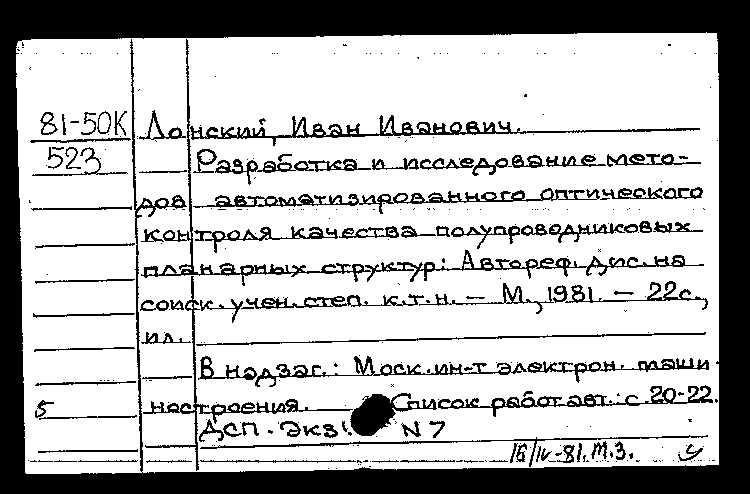 81-50К Лонский, Иван Иванович.
523 Разработка и исследование мето-
дов автоматизированного оптического
контроля качества полупроводниковых
планарных структур: Автореф. дис. на
соиск. учен. степ. к.т.н. — М., 1981. — 22с.,
ил.
В надзаг.: Моск. ин-т электрон. маши-
5 ностроения. Список работ авт.: с. 20-22.
ДСП. Экз. N 7
16/IV-81. т.з.